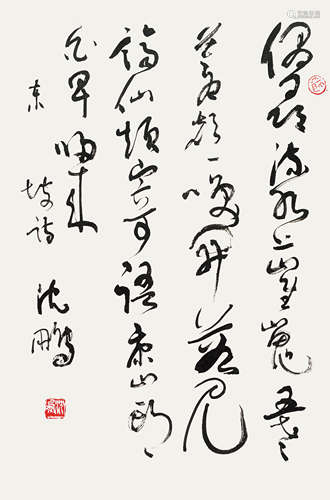 偶尋流水上崔嵬五老
蒼顏一笑開若見
謫仙煩寄語康山頭
白早歸來
東坡詩
沈鵬